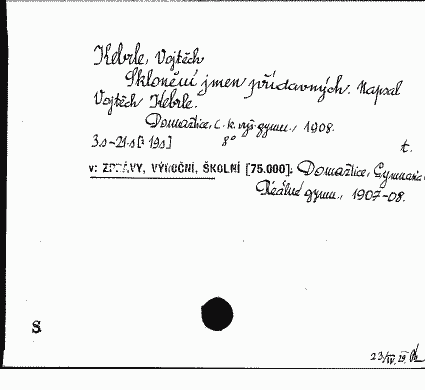 Kebrle, Vojtěch
Sklonění jmen přídavných. Napsal
Vojtěch Kebrle.
Domažlice, c. k. vyš. gymn., 1908.
3 s - 21 s [: 19 s] 8° t.
v: ZPRÁVY, VÝROČNÍ, ŠKOLNÍ [75.000]: Domažlice, Gymnasia
Reálné gymn., 1907-08.
S
23/IV. 29